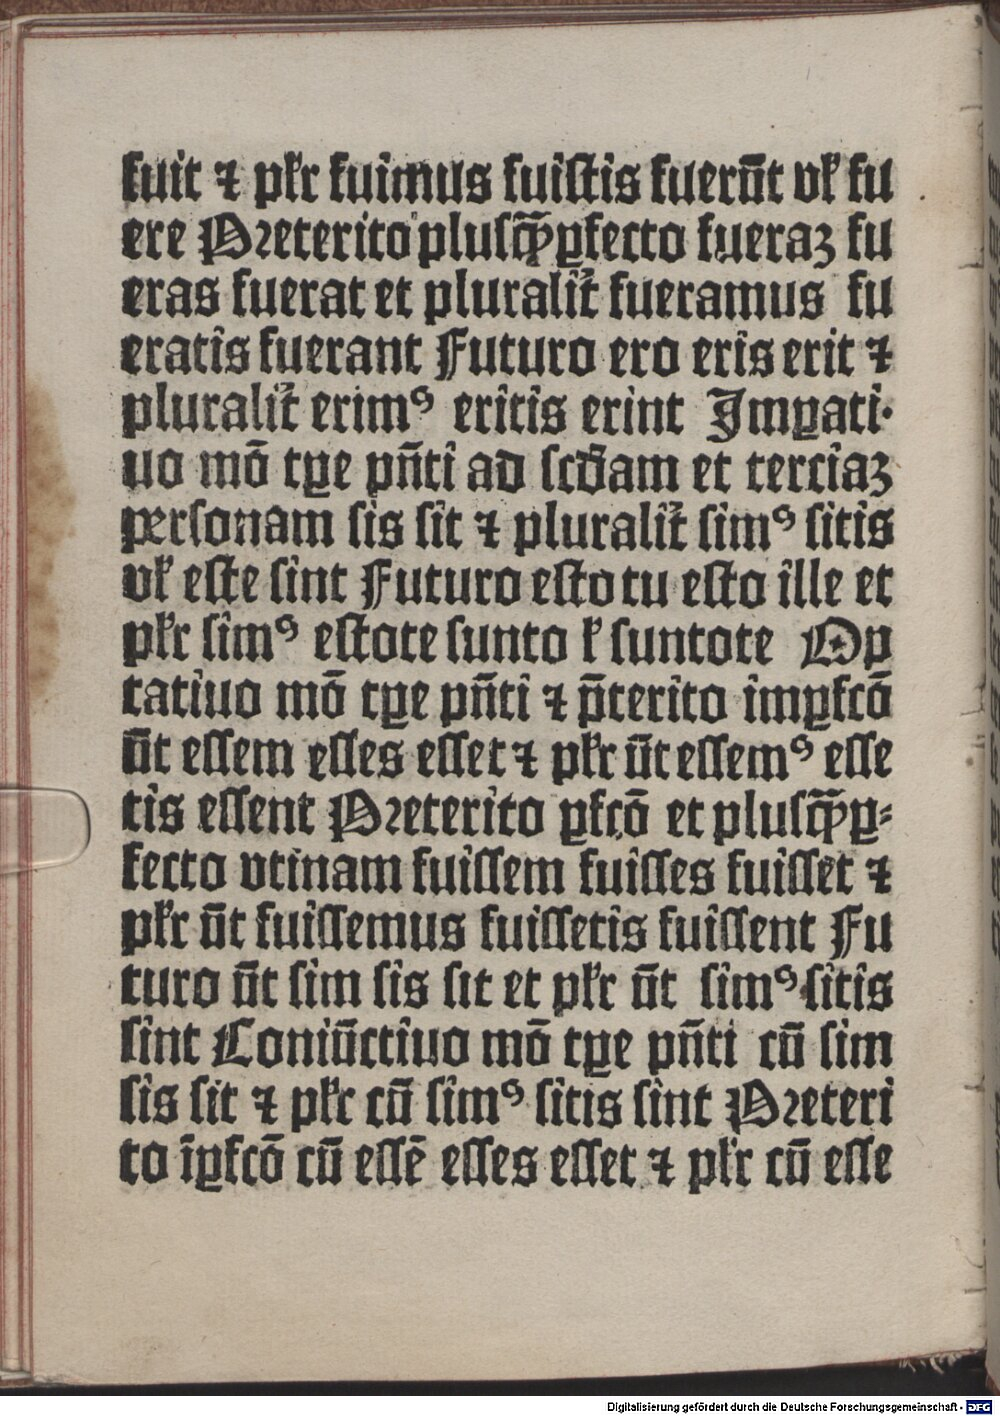 fuit ⁊ pl̃r fuimus fuiſtis fuerūt vl̃ fu
ere Preterito pluſꝙ̄ꝑfecto fueraꝫ fu
eras fuerat et pluralit̃ fueramus fu
eratis fuerant Futuro ero eris erit ⁊
pluralit̃ erimꝰ eritis erint Imꝑati⸗
uo mō tꝑe pn̄ti ad ſcd̄am et terciaꝫ
perſonam ſis ſit ⁊ pluralit̃ ſimꝰ ſitis
vl̃ eſte ſint Futuro eſto tu eſto ille et
pl̃r ſimꝰ eſtote ſunto l̃ ſuntote Op
tatiuo mō tꝑe pn̄ti ⁊ p̄terito imꝑfcō
vt̄ eſſem eſſes eſſet ⁊ pl̃r vt̄ eſſemꝰ eſſe
tis eſſent Preterito ꝑfcō et pluſꝙ̄ꝑ⸗
fecto vtinam fuiſſem fuiſſes fuiſſet ⁊
pl̃r vt̄ fuiſſemus fuiſſetis fuiſſent Fu
turo vt̄ ſim ſis ſit et pl̃r vt̄ ſimꝰ ſitis
ſint Coniūctiuo mō tꝑe pn̄ti cū ſim
ſis ſit ⁊ pl̃r cū ſimꝰ ſitis ſint Preteri
to īꝑfcō cū eſſē eſſes eſſet ⁊ pl̃r cū eſſe
Digitalisierung gefördert durch die Deutsche Forschungsgemeinschaft - DFG